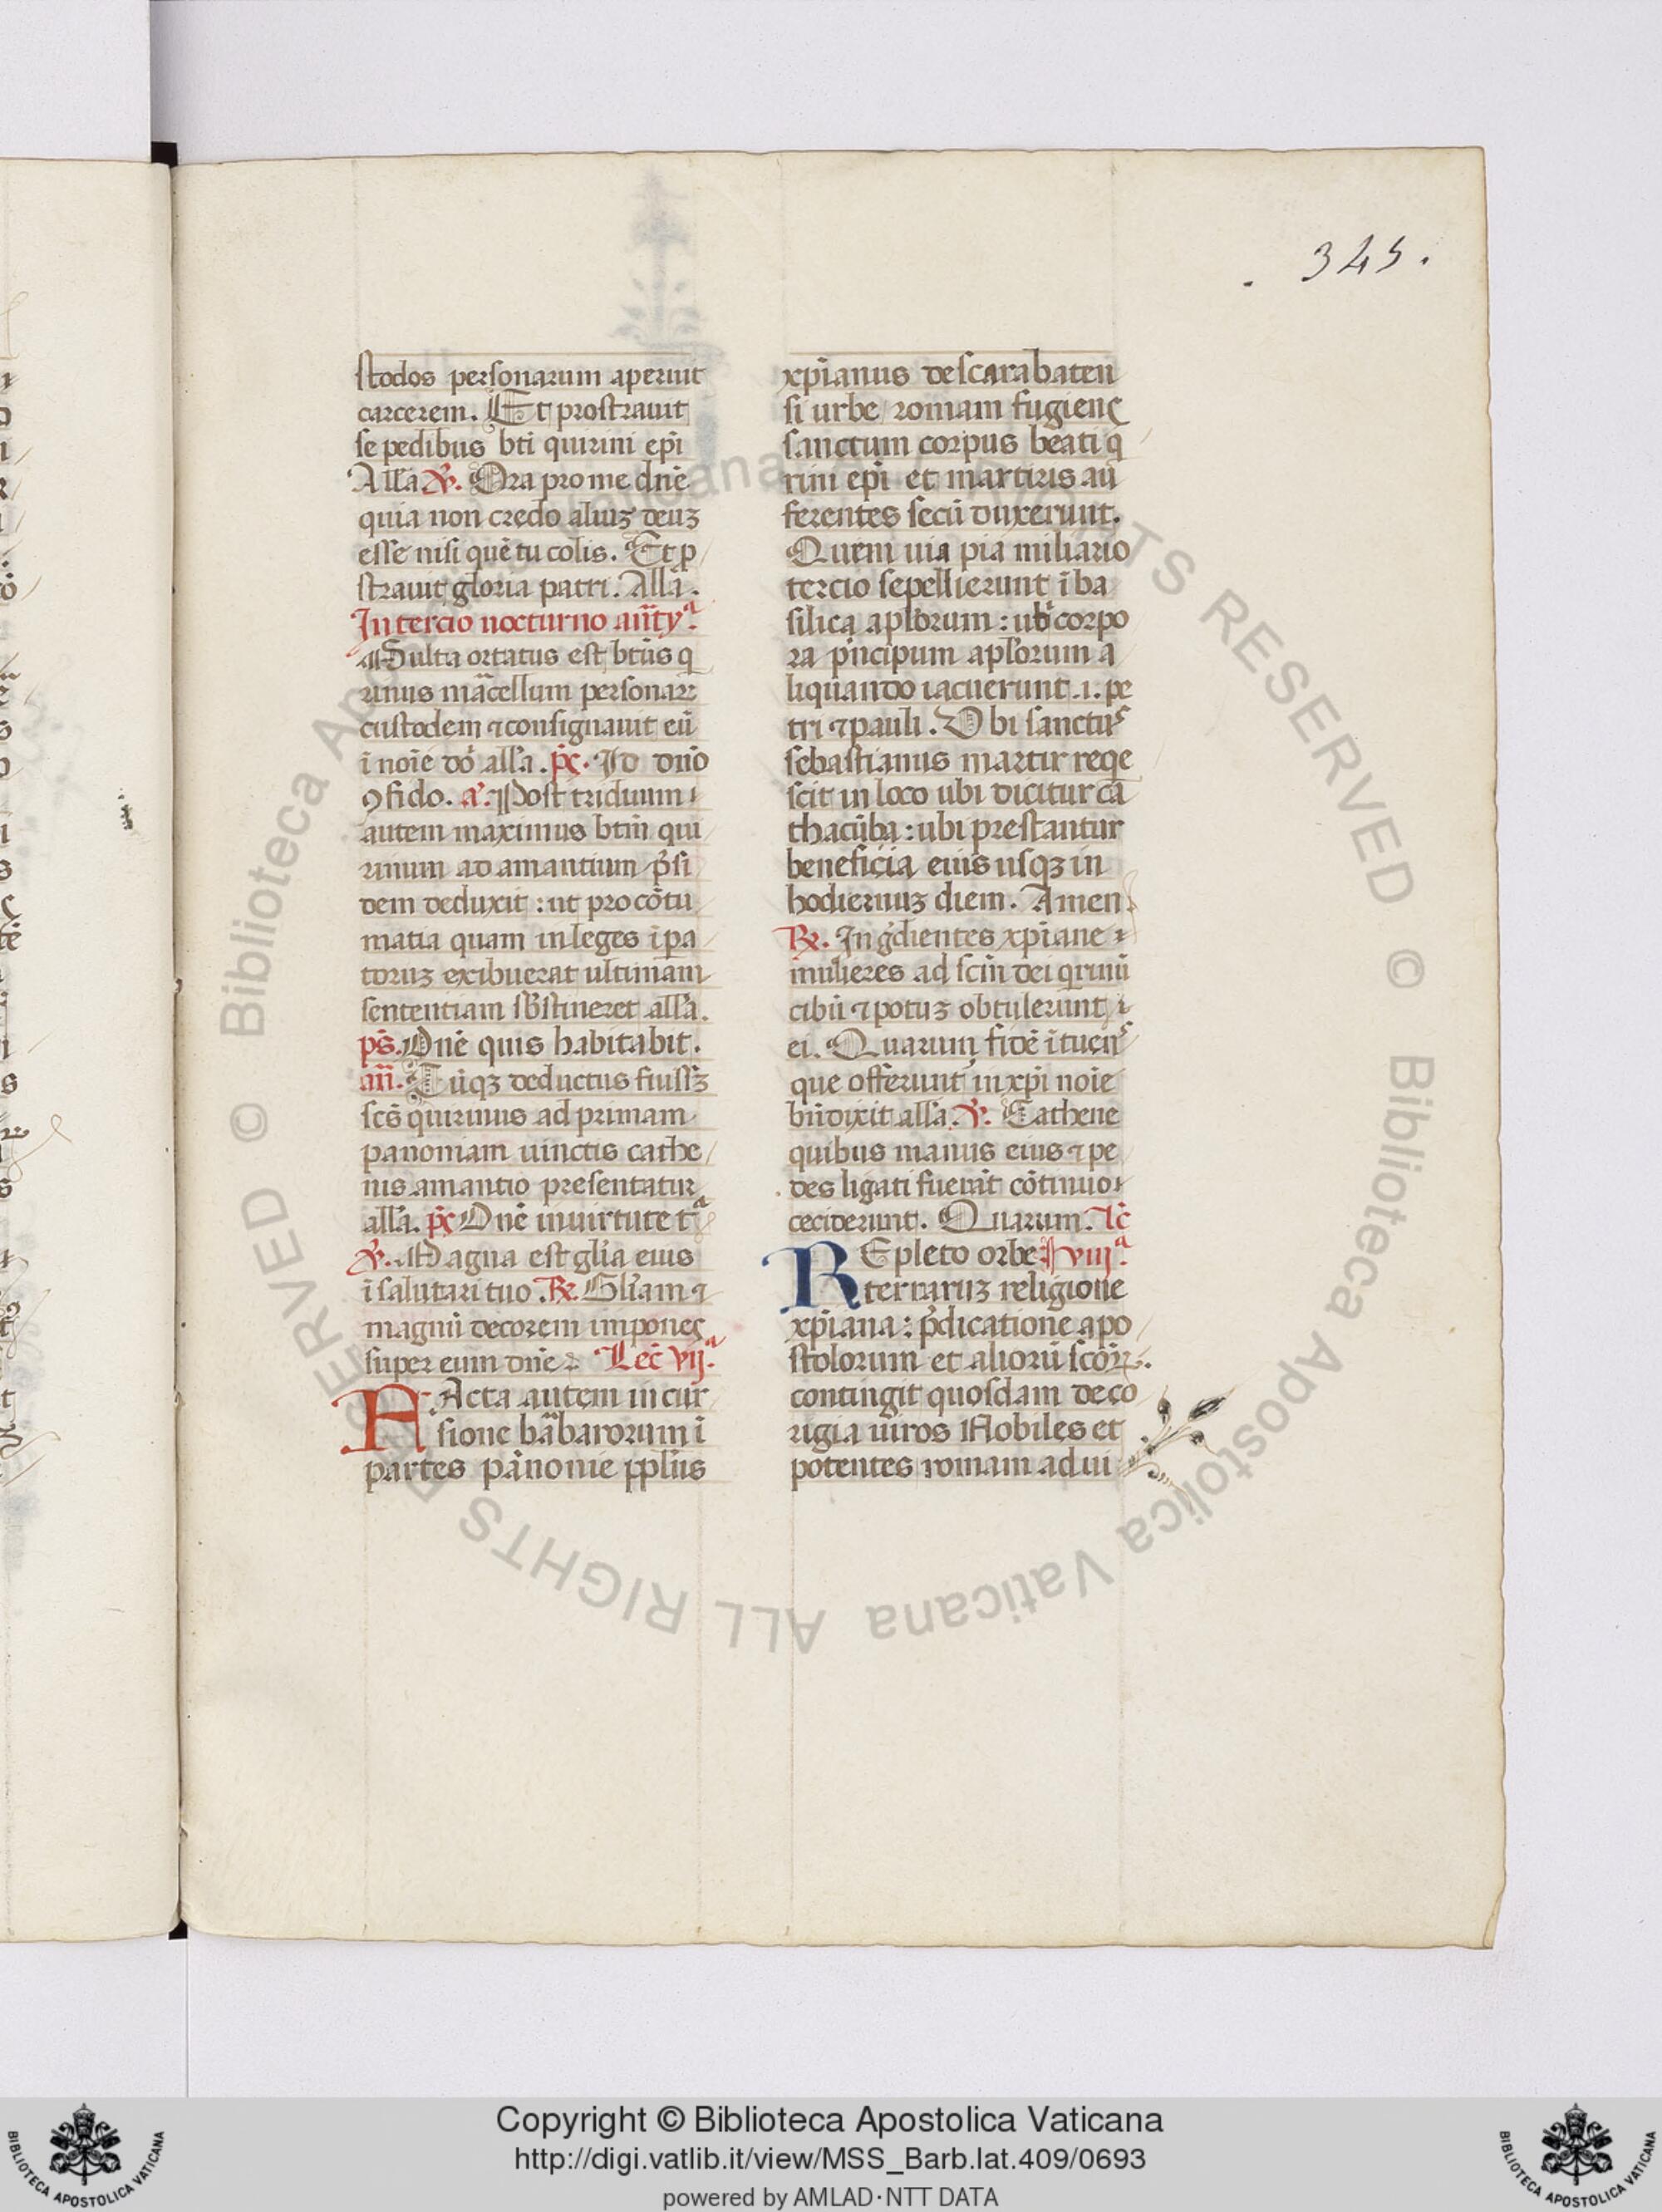 . 345.
stodos personarum aperuit
carcerem. Et prostrauit
se pedibus bti quirini ep̄i
All'a ℣. Ora pro me dn̄e
quia non credo aliuꝫ deuꝫ
esse nisi quē tu colis. Et ꝓ
strauit gloria patri. All'a.
In tercio nocturno an̄tyᵃ.
Multa ortatus est bt̄us q
rinus mᵃcellum personaꝝ
custodem ⁊ consignauit eū
ī noīe dō all'a. pſ̄. In dn̄o
ꝯfido. aᵃ. Post triduum
autem maximus btm̄ qui
rinum ad amantium p̄si
dem deduxit : ut pro cōtu
matia quam in leges īpa
toruꝫ exibuerat ultimam
sententiam sb̄stineret all'a.
ps̄. Dn̄e quis habitabit.
an̄. Cūqꝫ deductus fuissꝫ
scs̄ quirinus ad primam
panoniam uinctis cathe
nis amantio presentatur
all'a. pſ̄ Dn̄e in uirtute tᵃ
℣. Magna est gl'ia eius
ī salutari tuo. ℟. Gl'iam ⁊
magnū decorem impones
super eum dn̄e. Lec̄ vijᵃ.
FActa autem in cur
sione bᵃbarorum ī
partes pānonie ppl'us
xp̄ianus de scarabaten
si urbe romam fugiens
sanctum corpus beati q
rini ep̄i et martiris au
ferentes secū duxerunt.
Quem uia pia miliario
tercio sepellierunt ī ba
silica apl'orum : ubi corpo
ra pncipum apl'orum a
liquando iacuerunt .i. pe
tri ⁊ pauli. Vbi sanctus
sebastianus martir reqe
scit in loco ubi dicitur ca
thacūba : ubi prestantur
beneficia eius usqꝫ in
hodiernuꝫ diem. Amen.
℟. Ingdientes xp̄iane
mulieres ad scm̄ dei qrinū
cibū ⁊ potuꝫ obtulerunt
ei. Quarum fidē ītuens
que offerunt in xp̄i noīe
bn̄dixit all'a. ℣. Cathene
quibus manus eius ⁊ pe
des ligati fuerāt cōtinuo
ceciderunt. Quarum. Lc̄
REpleto orbe viijᵃ.
terraruꝫ religione
xp̄iana : p̄dicatione apo
stolorum et aliorū scōꝝ.
contingit quosdam de co
rigia uiros Nobiles et
potentes romam ad ui
© Biblioteca Apostolica Vaticana ALL RIGHTS RESERVED
Copyright © Biblioteca Apostolica Vaticana
http://digi.vatlib.it/view/MSS_Barb.lat.409/0693
powered by AMLAD·NTT DATA
BIBLIOTECA APOSTOLICA VATICANA
BIBLIOTECA APOSTOLICA VATICANA